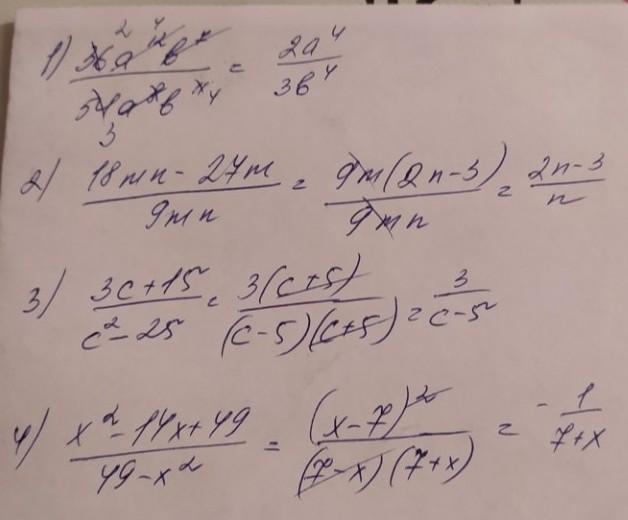 1) 36a¹²b⁷ / 54a⁸b^x = 2a⁴ / 3b⁴
2) 18mn - 27m / 9mn = 9m(2n-3) / 9mn = 2n-3 / n
3) 3c+15 / c²-25 = 3(c+5) / (c-5)(c+5) = 3 / c-5
4) x²-14x+49 / 49-x² = (x-7)² / (7-x)(7+x) = - 1 / 7+x